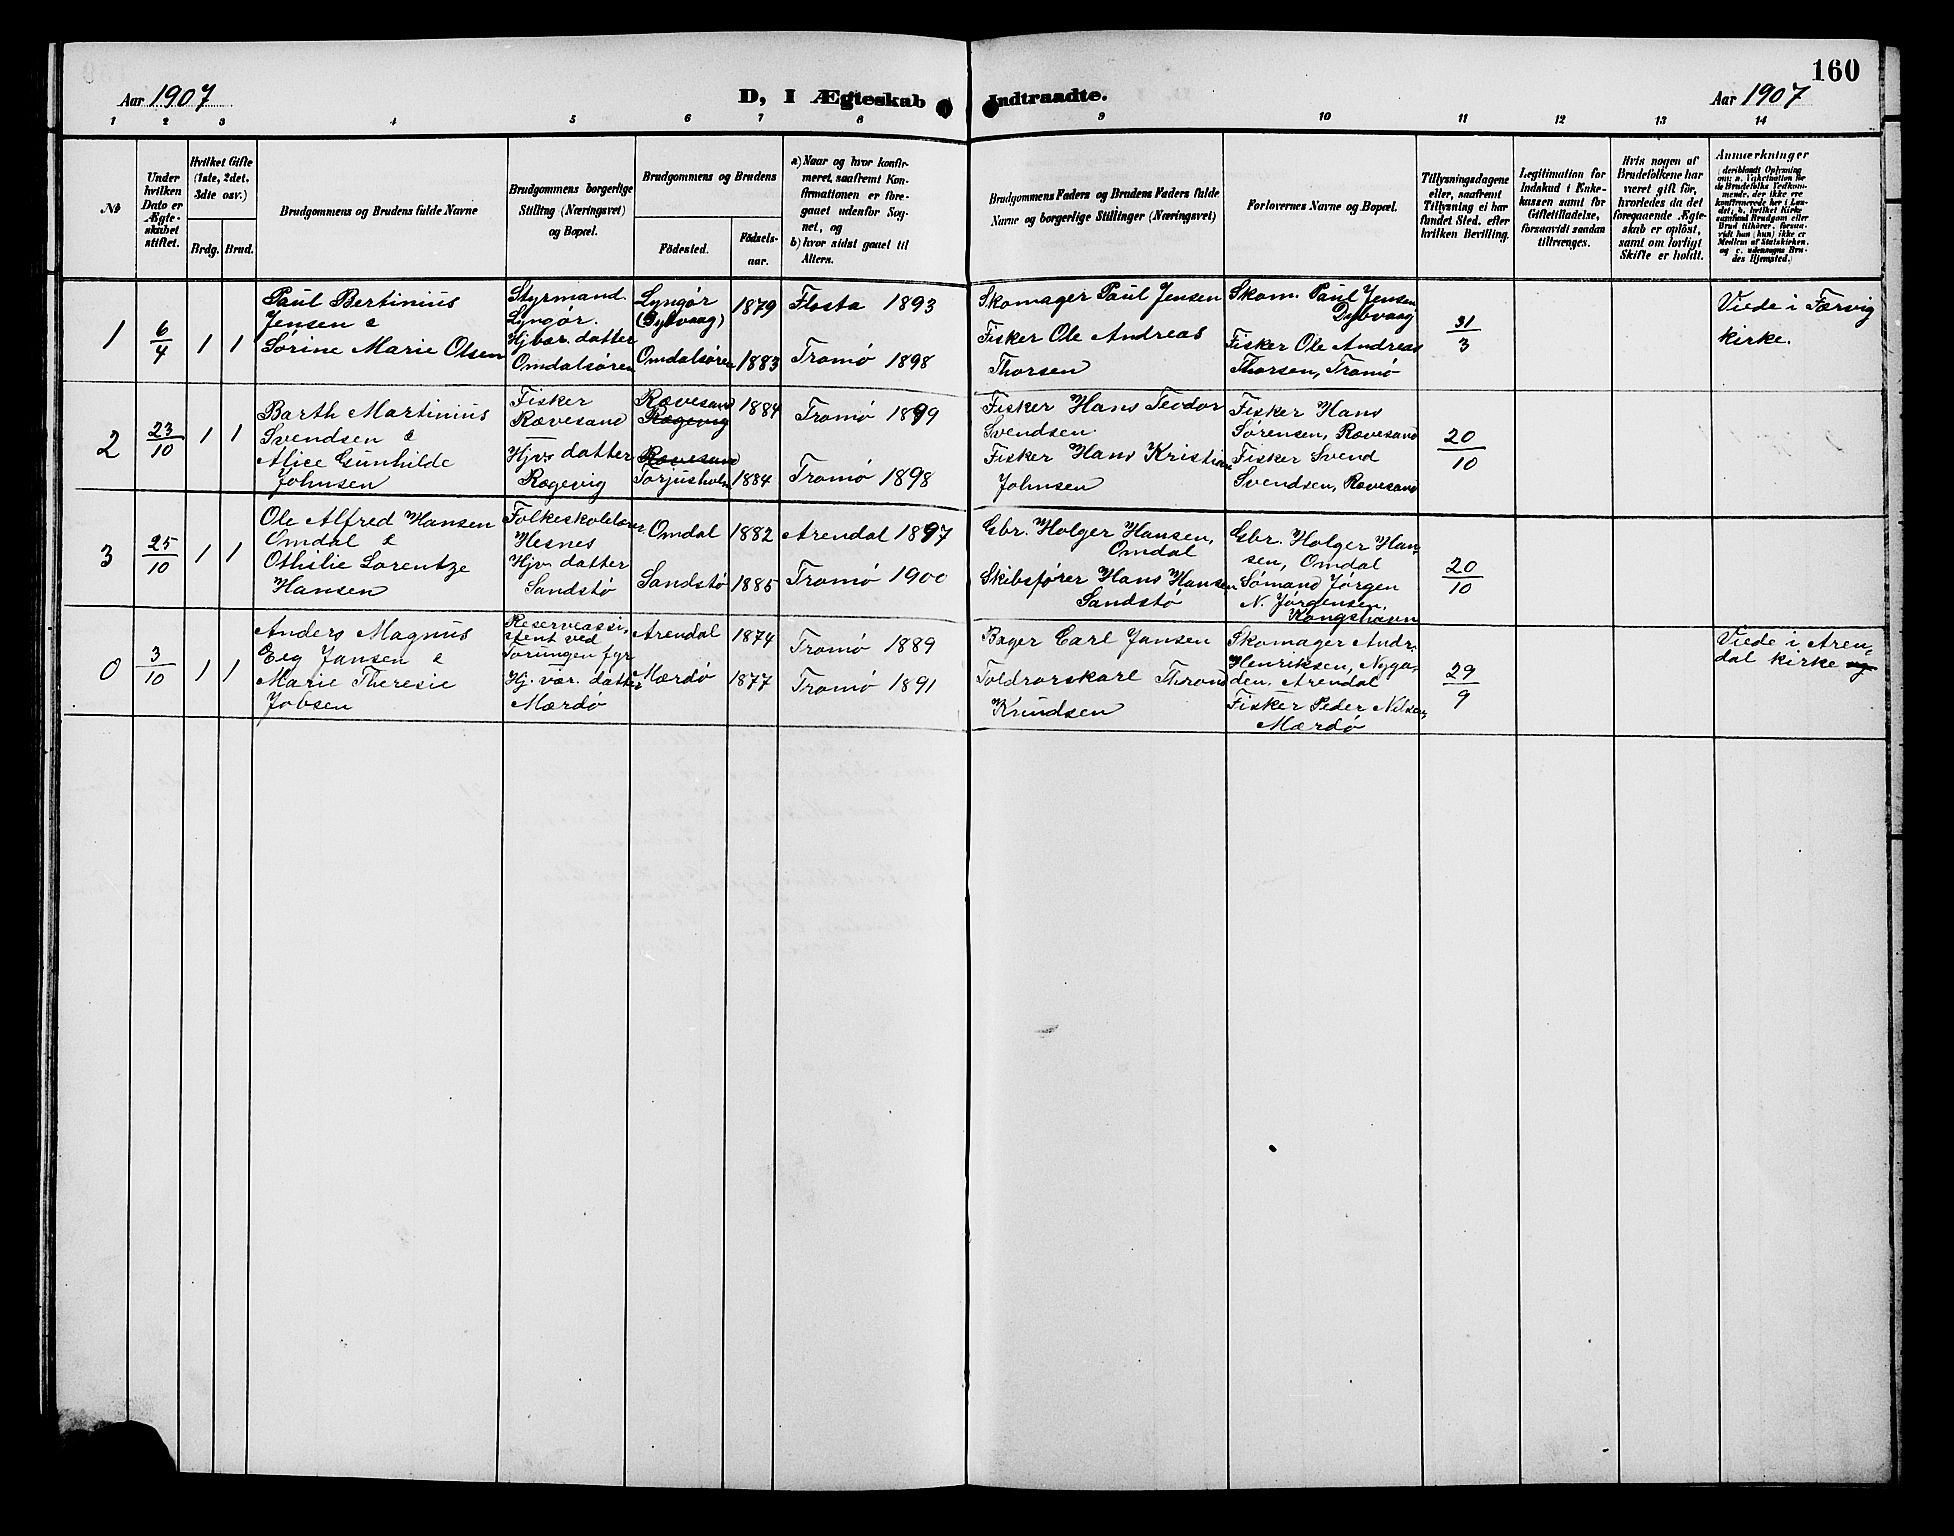 160
Aar 1907
D, I Ægteskab Indtraadte.
Aar 1907
1 2 3 4 5 6 7 8 9 10 11 12 13 14
№
Under hvilken Dato er Ægteskabet stiftet.
Hvilket Gifte (1ste, 2det. 3die osv.)
Brdg. Brud.
Brudgommens og Brudens fulde Navne
Brudgommens borgerlige Stilling (Næringsvei) og Bopæl.
Brudgommens og Brudens
Födested.
Födselsaar.
a) Naar og hvor konfirmeret, saafremt Konfirmationen er foregaaet udenfor Sognet, og
b) hvor sidst gaaet til Alters.
Brudgommens Faders og Brudens Faders fulde Navne og borgerlige Stillinger (Næringsvei)
Forlovernes Navne og Bopæl.
Tillysningsdagene eller, saafremt Tillysning ei har fundet Sted. efter hvilken Bevilling.
Legitimation for Indskud i Enkekassen samt for Giftetilladelse, forsaavidt saadan tiltrænges.
Hvis nogen af Brudefolkene har været gift för, hvorledes da det foregaaende Ægteskab er oplöst, samt om lovligt Skifte er holdt.
Anmærkninger
1
6/4
1 1
Paul Bertinius
Jensen &
Sörine Marie Olsen
Styrmand.
Lyngör.
Hjvær. datter
Omdalsören
Lyngör
(Dybvaag)
Omdalsören
1879
1883
Flosta 1893
Tromö 1898
Skomager Paul Jensen
Fisker Ole Andreas
Thorsen
Skom. Paul Jensen
Dybvaag
Fisker Ole Andreas
Thorsen, Tromö
31/3
Viede i Færvig
kirke.
2
23/10
1 1
Barth Martinius
Svendsen &
Alice Gunhilde
Johnsen
Fisker
Rævesand
Hjv. datter
Rægevig
Rævesand
Rægevig
Rævesand
Torjusholm
1884
1884
Tromö 1899
Tromö 1898
Fisker Hans Teodor
Svendsen.
Fisker Hans Kristian
Johnsen
Fisker Hans
Sørensen, Rævesand
Fisker Svend
Svendsen, Rævesand
20/10
3
25/10
1 1
Ole Alfred Hansen
Omdal &
Othilie Lorentze
Hansen
Folkeskolelærer
Hesnes
Hjv. datter
Sandstö
Omdal
Sandstö
1882
1885
Arendal 1897
Tromö 1900
Gbr. Holger Hansen,
Omdal
Skibsfører Hans Hansen
Sandstö
Gbr. Holger Han-
sen, Omdal
Sømand Jørgen
N. Jørgensen,
Kongshavn
20/10
0
3/10
1 1
Anders Magnus
Eeg Jansen &
Marie Theresie
Jobsen
Reserveassi-
stent ved
Torungen fyr
Hj. vær. datter
Mærdö
Arendal
Mærdö
1874
1877
Tromö 1889
Tromö 1891
Bager Carl Jansen
Toldrorskarl Thrond
Knudsen
Skomager Andr.
Henriksen, Nyga-
den, Arendal
Fisker Peder Nilsen,
Mærdö
29/9
Viede i Aren-
dal kirke